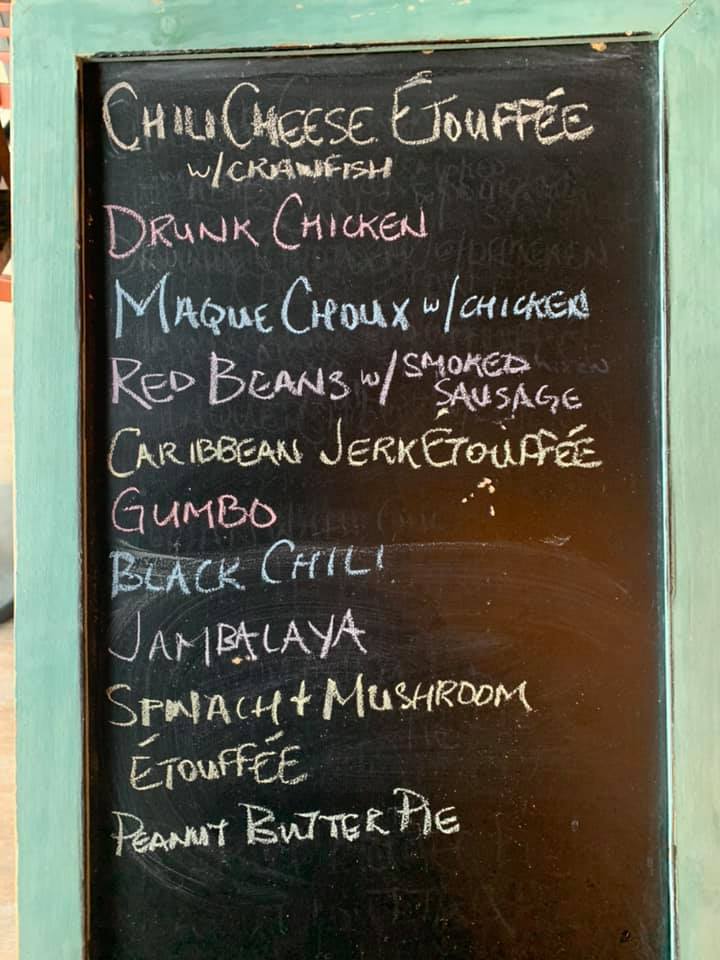 CHILI CHEESE ÉTOUFFÉE
W/CRAWFISH
DRUNK CHICKEN
MAQUE CHOUX W/CHICKEN
RED BEANS W/ SMOKED
SAUSAGE
CARIBBEAN JERK ÉTOUFFÉE
GUMBO
BLACK CHILI
JAMBALAYA
SPINACH + MUSHROOM
ÉTOUFFÉE
PEANUT BUTTER PIE